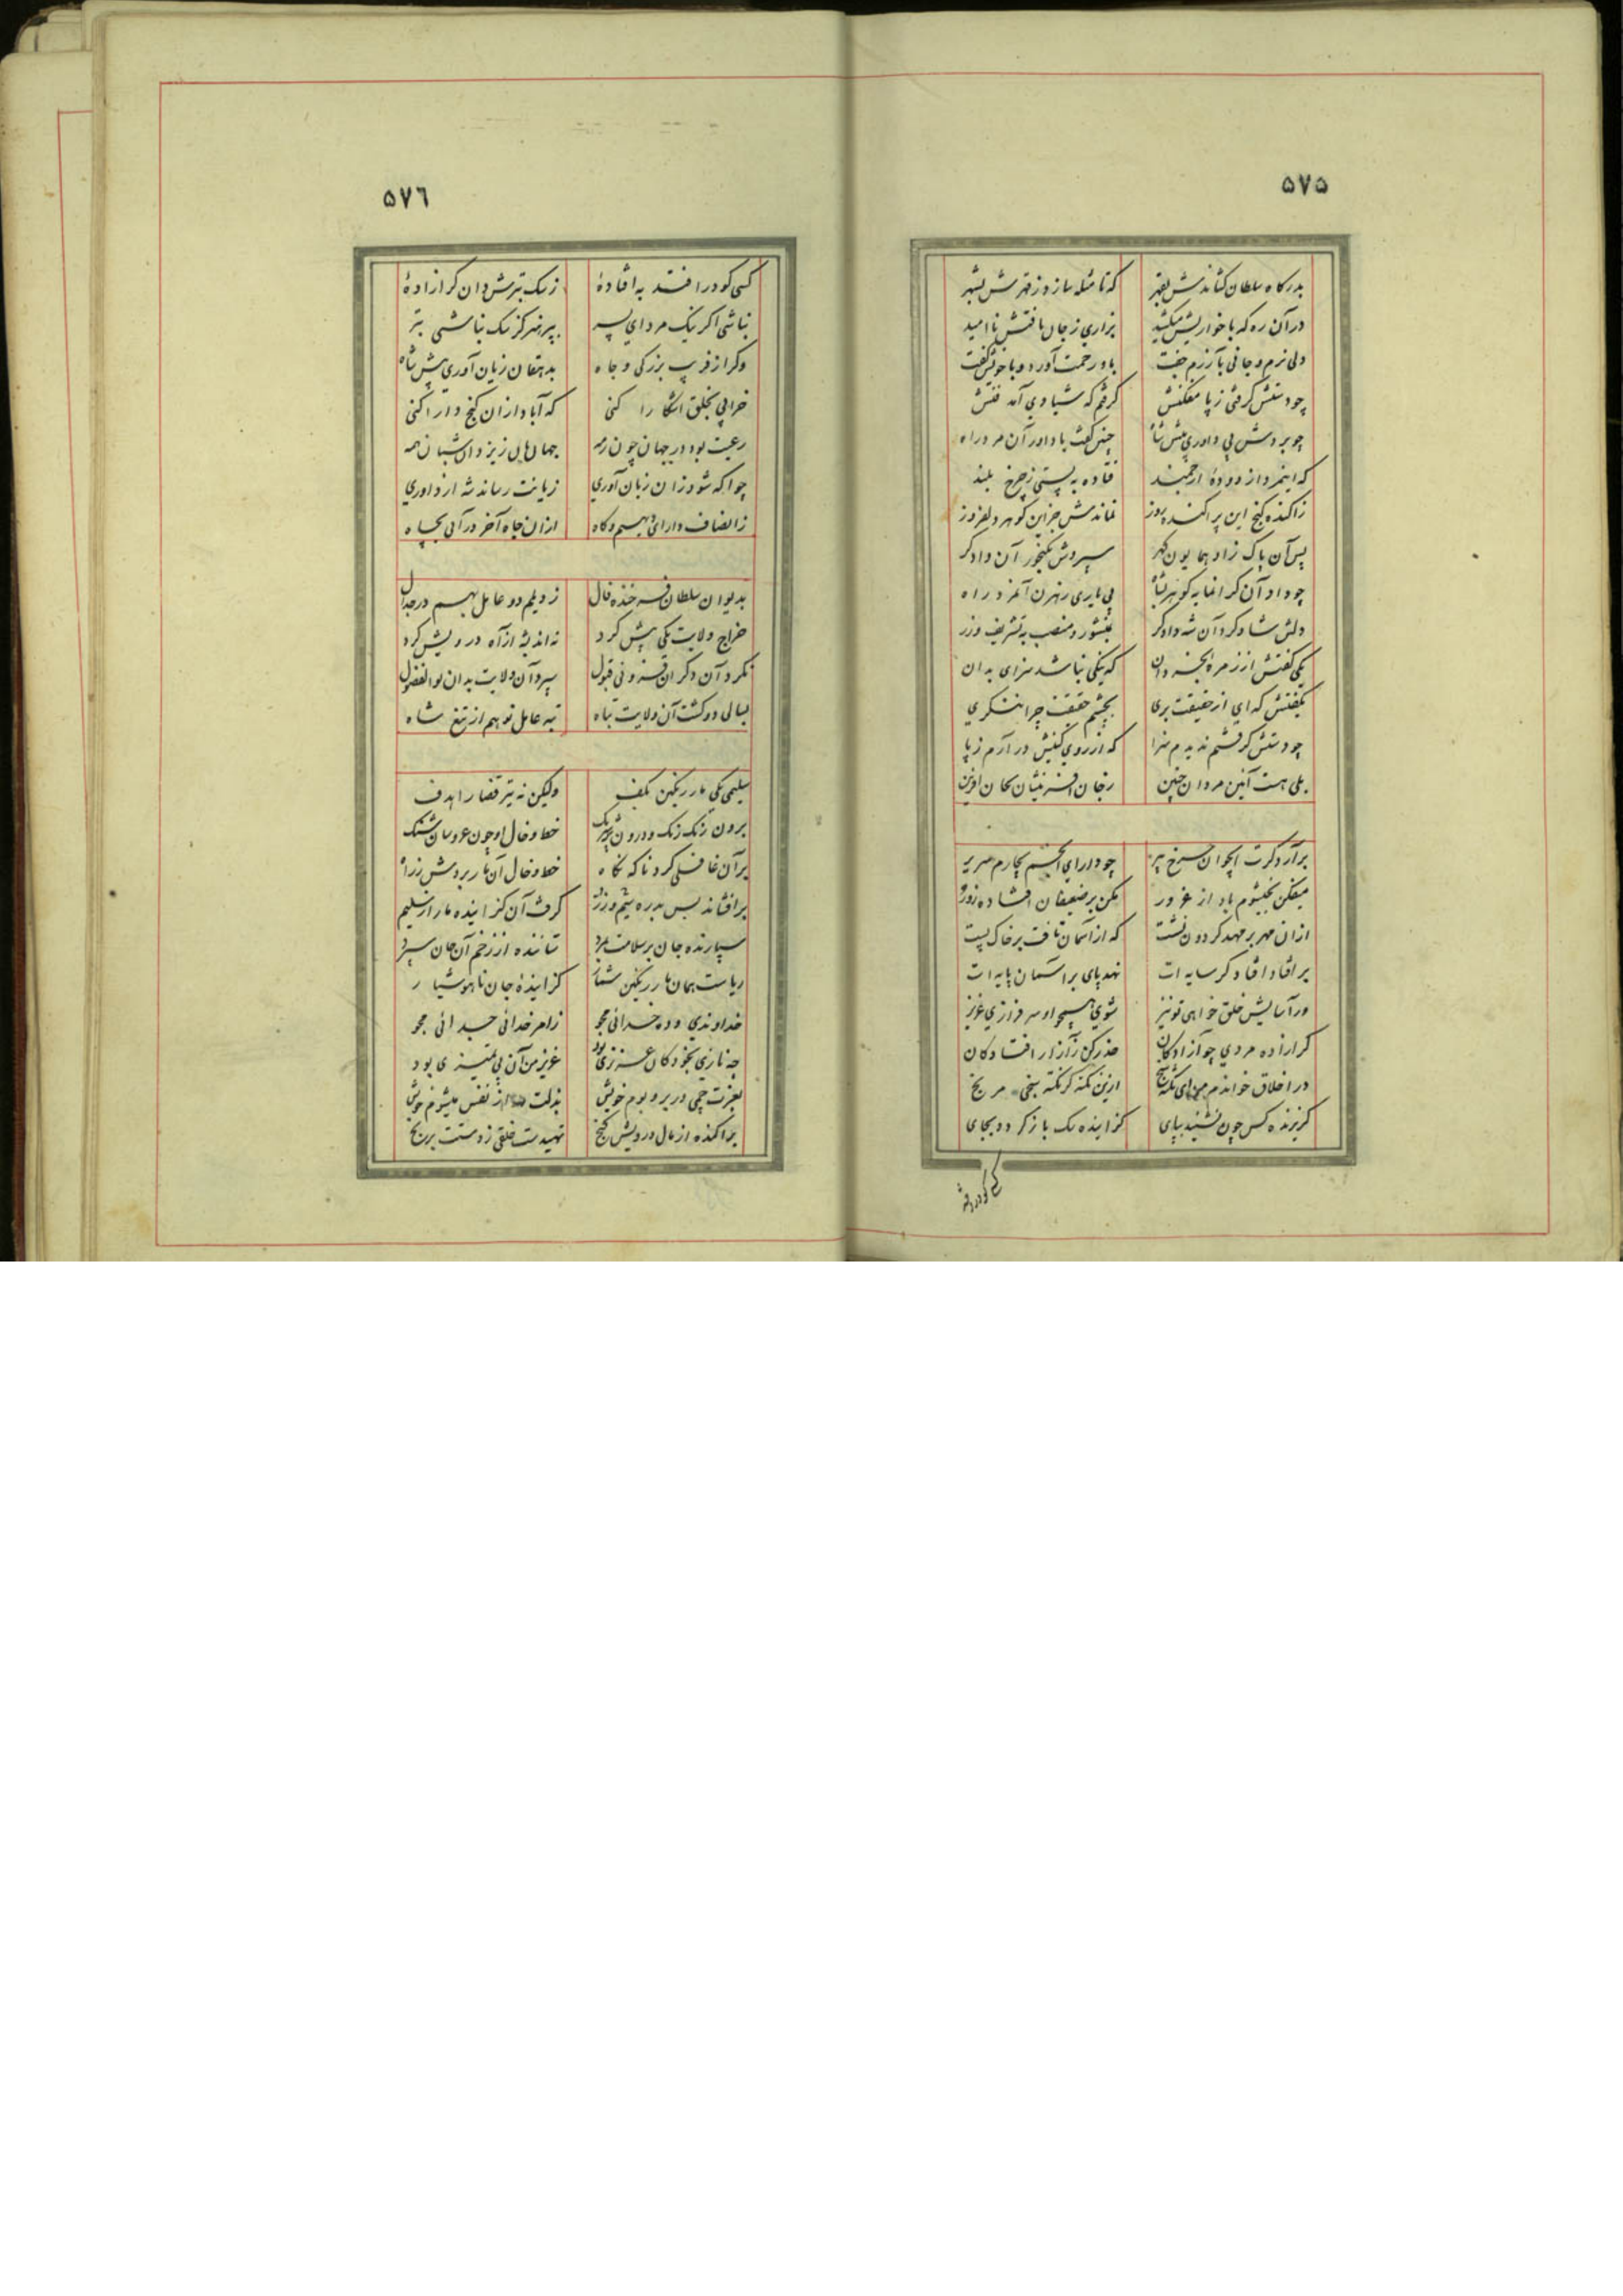 ۵۷۵
بدرکاه سلطان کشاندش بقهر که تا مثله سازد ز قهرش بشهر
در آن ره که با خواریش میکشید بزاری ز جان یافتش ناامید
دلی نرم و جانی بآزرم جفت باو رحمت آورد و با خویش گفت
چو دستش گرفتی ز پا مفکنش کرفتم که شیادی آمد فنش
چو بردش پی داوری پیش شاه چنین گفت با داور آن مرد راه
که اینمرد از دودهٔ ارجمند فتاده به پستی ز چرخ بلند
ز آکنده کنج این پراکنده روز نماندش جز این کوهر دلفروز
پس آن پاک زاد همایون گهر سپردش بگنجور آن دادگر
چو داد آن گرانمایه گوهر بشاه پی یاری رهزن آنمرد راه
دلش شاد کرد آن شه دادگر بمنشور و منصب به تشریف و زر
یکی گفتش از زمرهٔ بخردان که نیکی نباشد سزای بدان
بگفتش که ای از حقیقت بری بچشم حقیقت چرا ننگری
چو دستش گرفتم ندیدم سزا که از روی کینش در آرم ز پا
بلی هست آئین مردان چنین
برآرد گرت چو دارای انجم بچارم سریر
میفکن بخیشوم باد از غرور مکن بر ضعیفان افتاده زور
ازان مهر بر مهد گردون نشست که از آسمان تافت بر خاک پست
بر افتاد افتاد گر سایه ات نهد پای بر آسمان پایه ات
ور آسایش خلق خواهی تو نیز شوی همچو او سرفرازی عزیز
گر آزاده مردی چو آزادگان حذر کن ز آزار افتادگان
در اخلاق خواندم من ای نکته سنج ازین نکته گر نکته سنجی مرنج
گریزنده کس چون نشیند بپای گزاینده سک باز گردد بجای
کسی کو در افتد
۵۷۶
کسی کو در افتد به افتادهٔ ز سک بترش دان گر آزادهٔ
نباشی اگر نیک مرد ای پسر بپرهیز کز سک نباشی بتر
وگر از فریب بزرگی و جاه بدهقان زیان آوری پیش شاه
خرابی بخلق آشکارا کنی که آباد ازان کنج دارا کنی
رعیت بود در جهان چون رمه جهانبان زیزدان شبان همه
چو آگه شود زان زیان آوری زیانت رساند شه از داوری
ز انصاف دارای دیهیم و گاه ازان جاه آخر در آئی بچاه
بدیوان سلطان فرخنده فال ز دیلم دو عامل بهم در جدال
خراج ولایت یکی پیش کرد نه اندیشه از آه درویش کرد
نکرد آن دگر ان فزونی قبول سپرد آن ولایت بدان بوالفضول
بسالی دو گشت آن ولایت تباه تبه عامل نو هم از تیغ شاه
سلیمی یکی مار رنگین بکف ولیکن نه تیر قضا را هدف
برون رنگ رنگ و درون خط و خال او چون عروسان شنگ
بر آن غافلی کرد ناگه نگاه خط و خال آن مار بردش ز راه
برافشاند بس بدره سیم و زر گرفت آن گزاینده مار از سلیم
سپارنده جان بر سلامت ببرد ستاننده از زخم آن جان سپرد
ریاست همان مار رنگین شمار گزایندهٔ جان ناهوشیار
خداوندی و ده خدائی مجو ز امر خدائی جدائی مجو
چه نازی بخود کان عزیزی بود عزیز من آن بی تمیزی بود
بعزت چمی در بر و بوم خویش بذلت ز نفس میشوم خویش
پراکنده از مال درویش گنج تهیدست خلقی ز دستت برنج